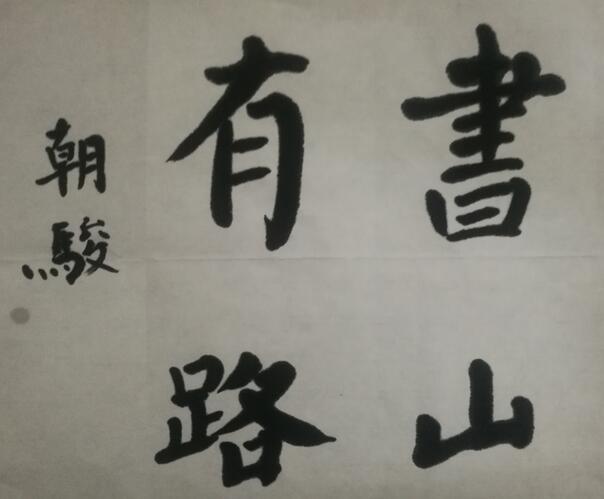 書山
有路
朝駿